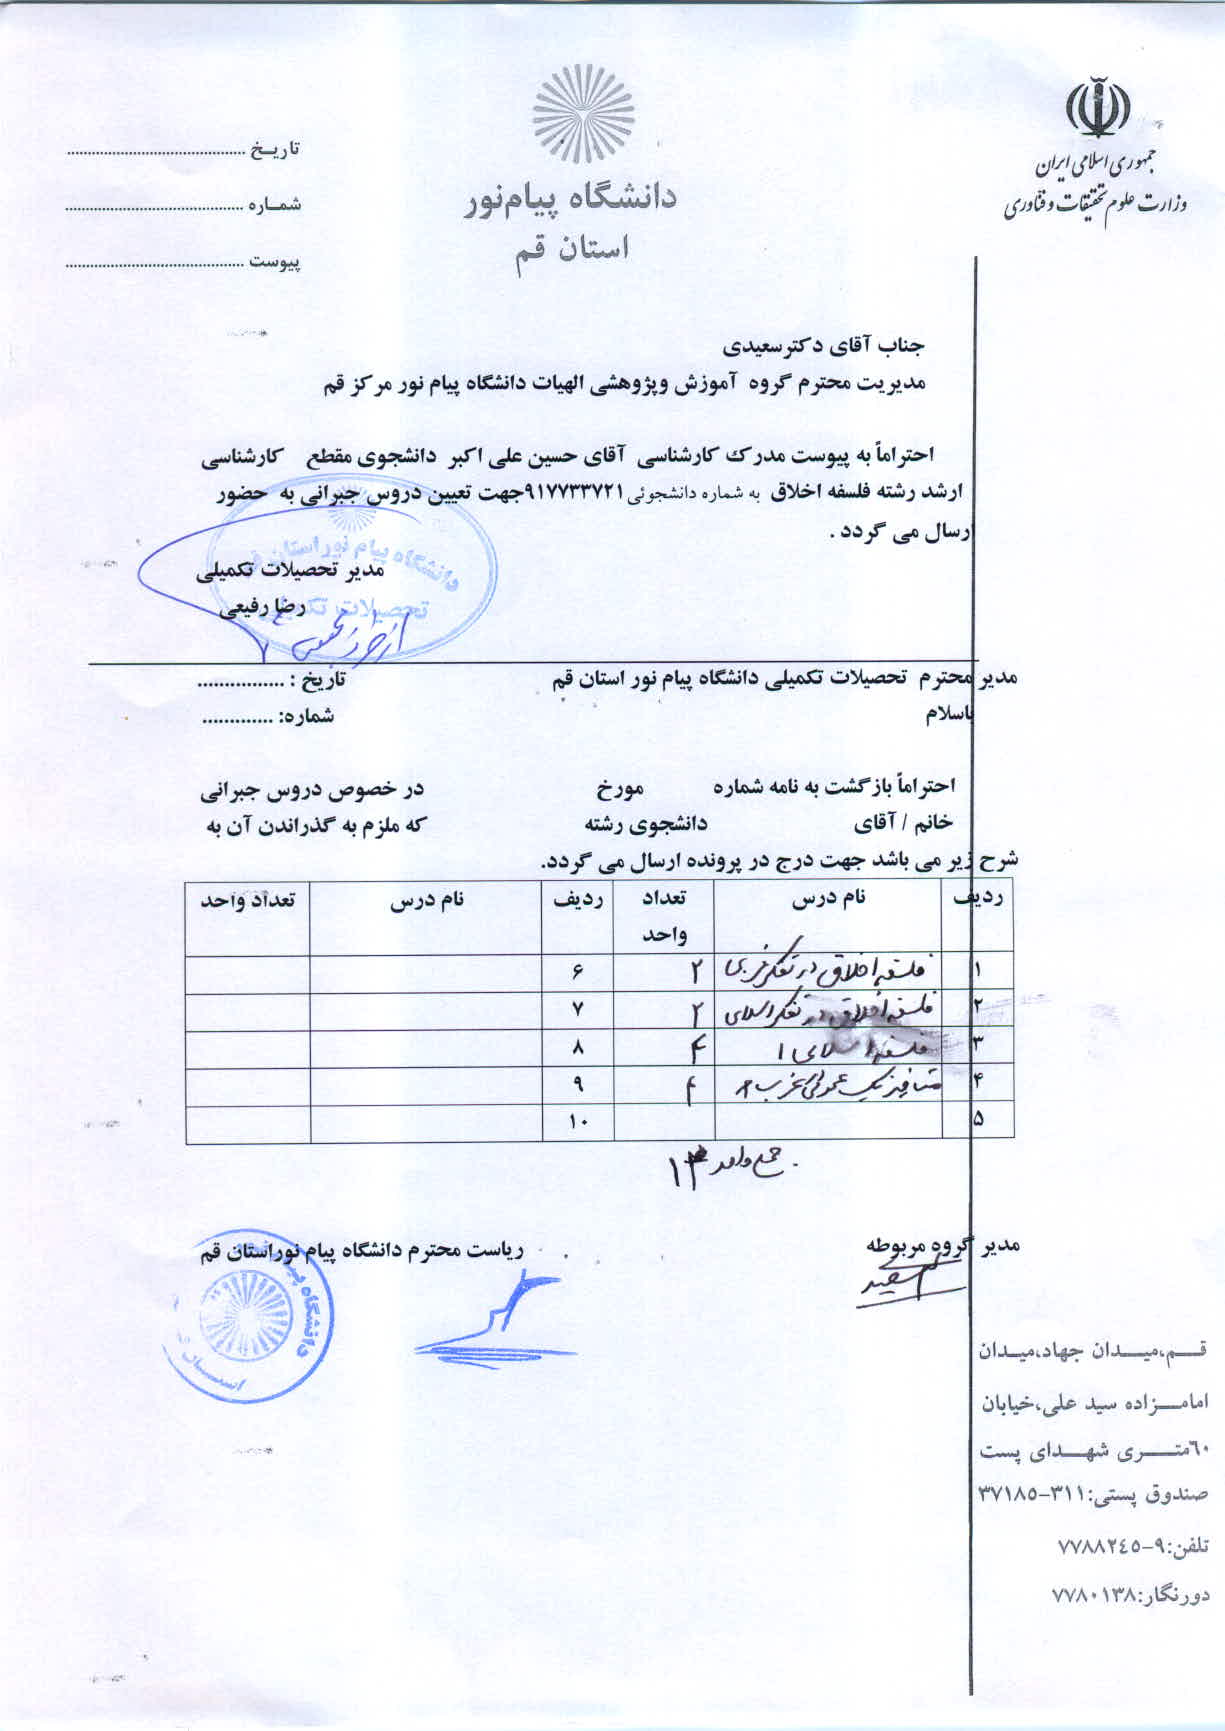 جمهوری اسلامی ایران
وزارت علوم تحقیقات و فناوری
دانشگاه پیام‌نور
استان قم
تاریـخ ........................................
شمـاره ........................................
پیوست ........................................
جناب آقای دکترسعیدی
مدیریت محترم گروه آموزش وپژوهشی الهیات دانشگاه پیام نور مرکز قم
احتراماً به پیوست مدرک کارشناسی آقای حسین علی اکبر دانشجوی مقطع کارشناسی
ارشد رشته فلسفه اخلاق به شماره دانشجوئی ۹۱۷۷۳۳۷۲۱جهت تعیین دروس جبرانی به حضور
ارسال می گردد .
دانشگاه پیام نور استان قم
تحصیلات تکمیلی
مدیر تحصیلات تکمیلی
رضا رفیعی
مدیر محترم تحصیلات تکمیلی دانشگاه پیام نور استان قم تاریخ : ................
باسلام شماره: .............
احتراماً بازگشت به نامه شماره مورخ در خصوص دروس جبرانی
خانم / آقای دانشجوی رشته که ملزم به گذراندن آن به
شرح زیر می باشد جهت درج در پرونده ارسال می گردد.
ردیف نام درس تعداد واحد ردیف نام درس تعداد واحد
۱ فلسفه اخلاق در تفکر غربی ۲ ۶
۲ فلسفه اخلاق در تفکر اسلامی ۲ ۷
۳ فلسفه اسلامی ۱ ۴ ۸
۴ متافیزیک غرب ۴ ۹
۵ ۱۰
جمع واحد ۱۲
مدیر گروه مربوطه ریاست محترم دانشگاه پیام نوراستان قم
سعیدی
دانشگاه پیام
استان
قــم،میــدان جهاد،میـدان
امامــزاده سید علی،خیابان
٦٠متــری شهــدای پست
صندوق پستی:۳۱۱-۳۷۱۸۵
تلفن:۹-۷۷۸۸۲٤٥
دورنگار:۷۷۸۰۱۳۸